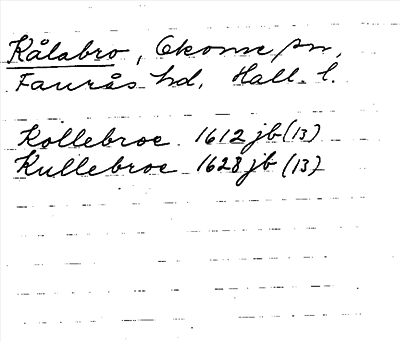 Kålabro, Okome sn,
Faurås hd, Hall. l.
Kollebroe 1612 jb (13)
Kullebroe 1628 jb (13)